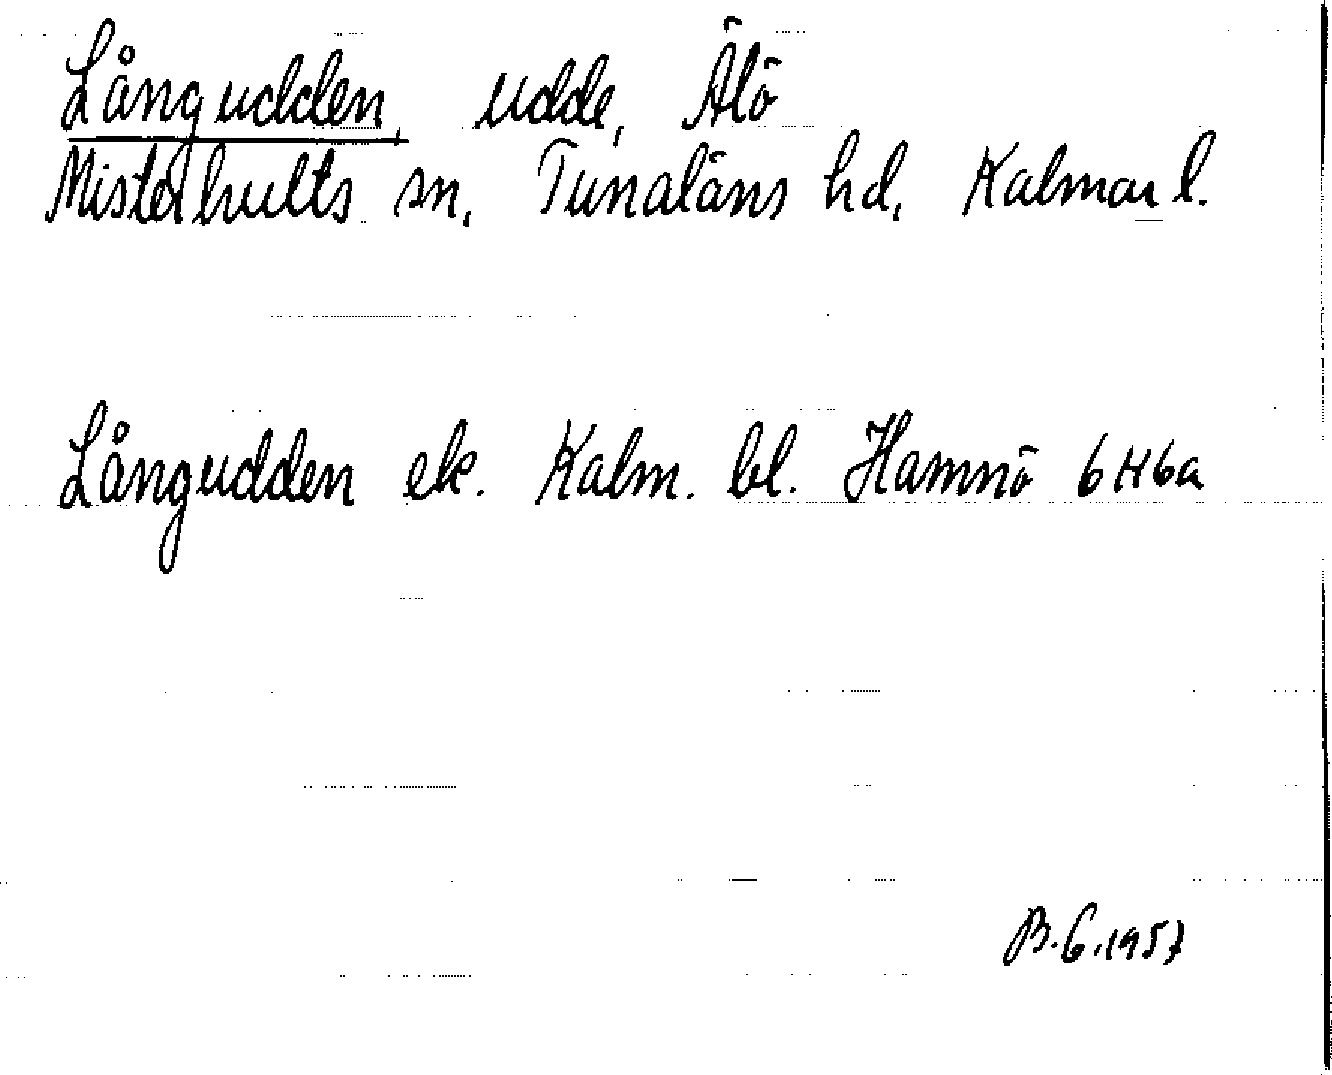 Långudden, udde, Älö
Misterhults sn, Tunaläns hd, Kalmar l.
Långudden ek. Kalm. bl. Hamnö 6H6a
B.G.1957